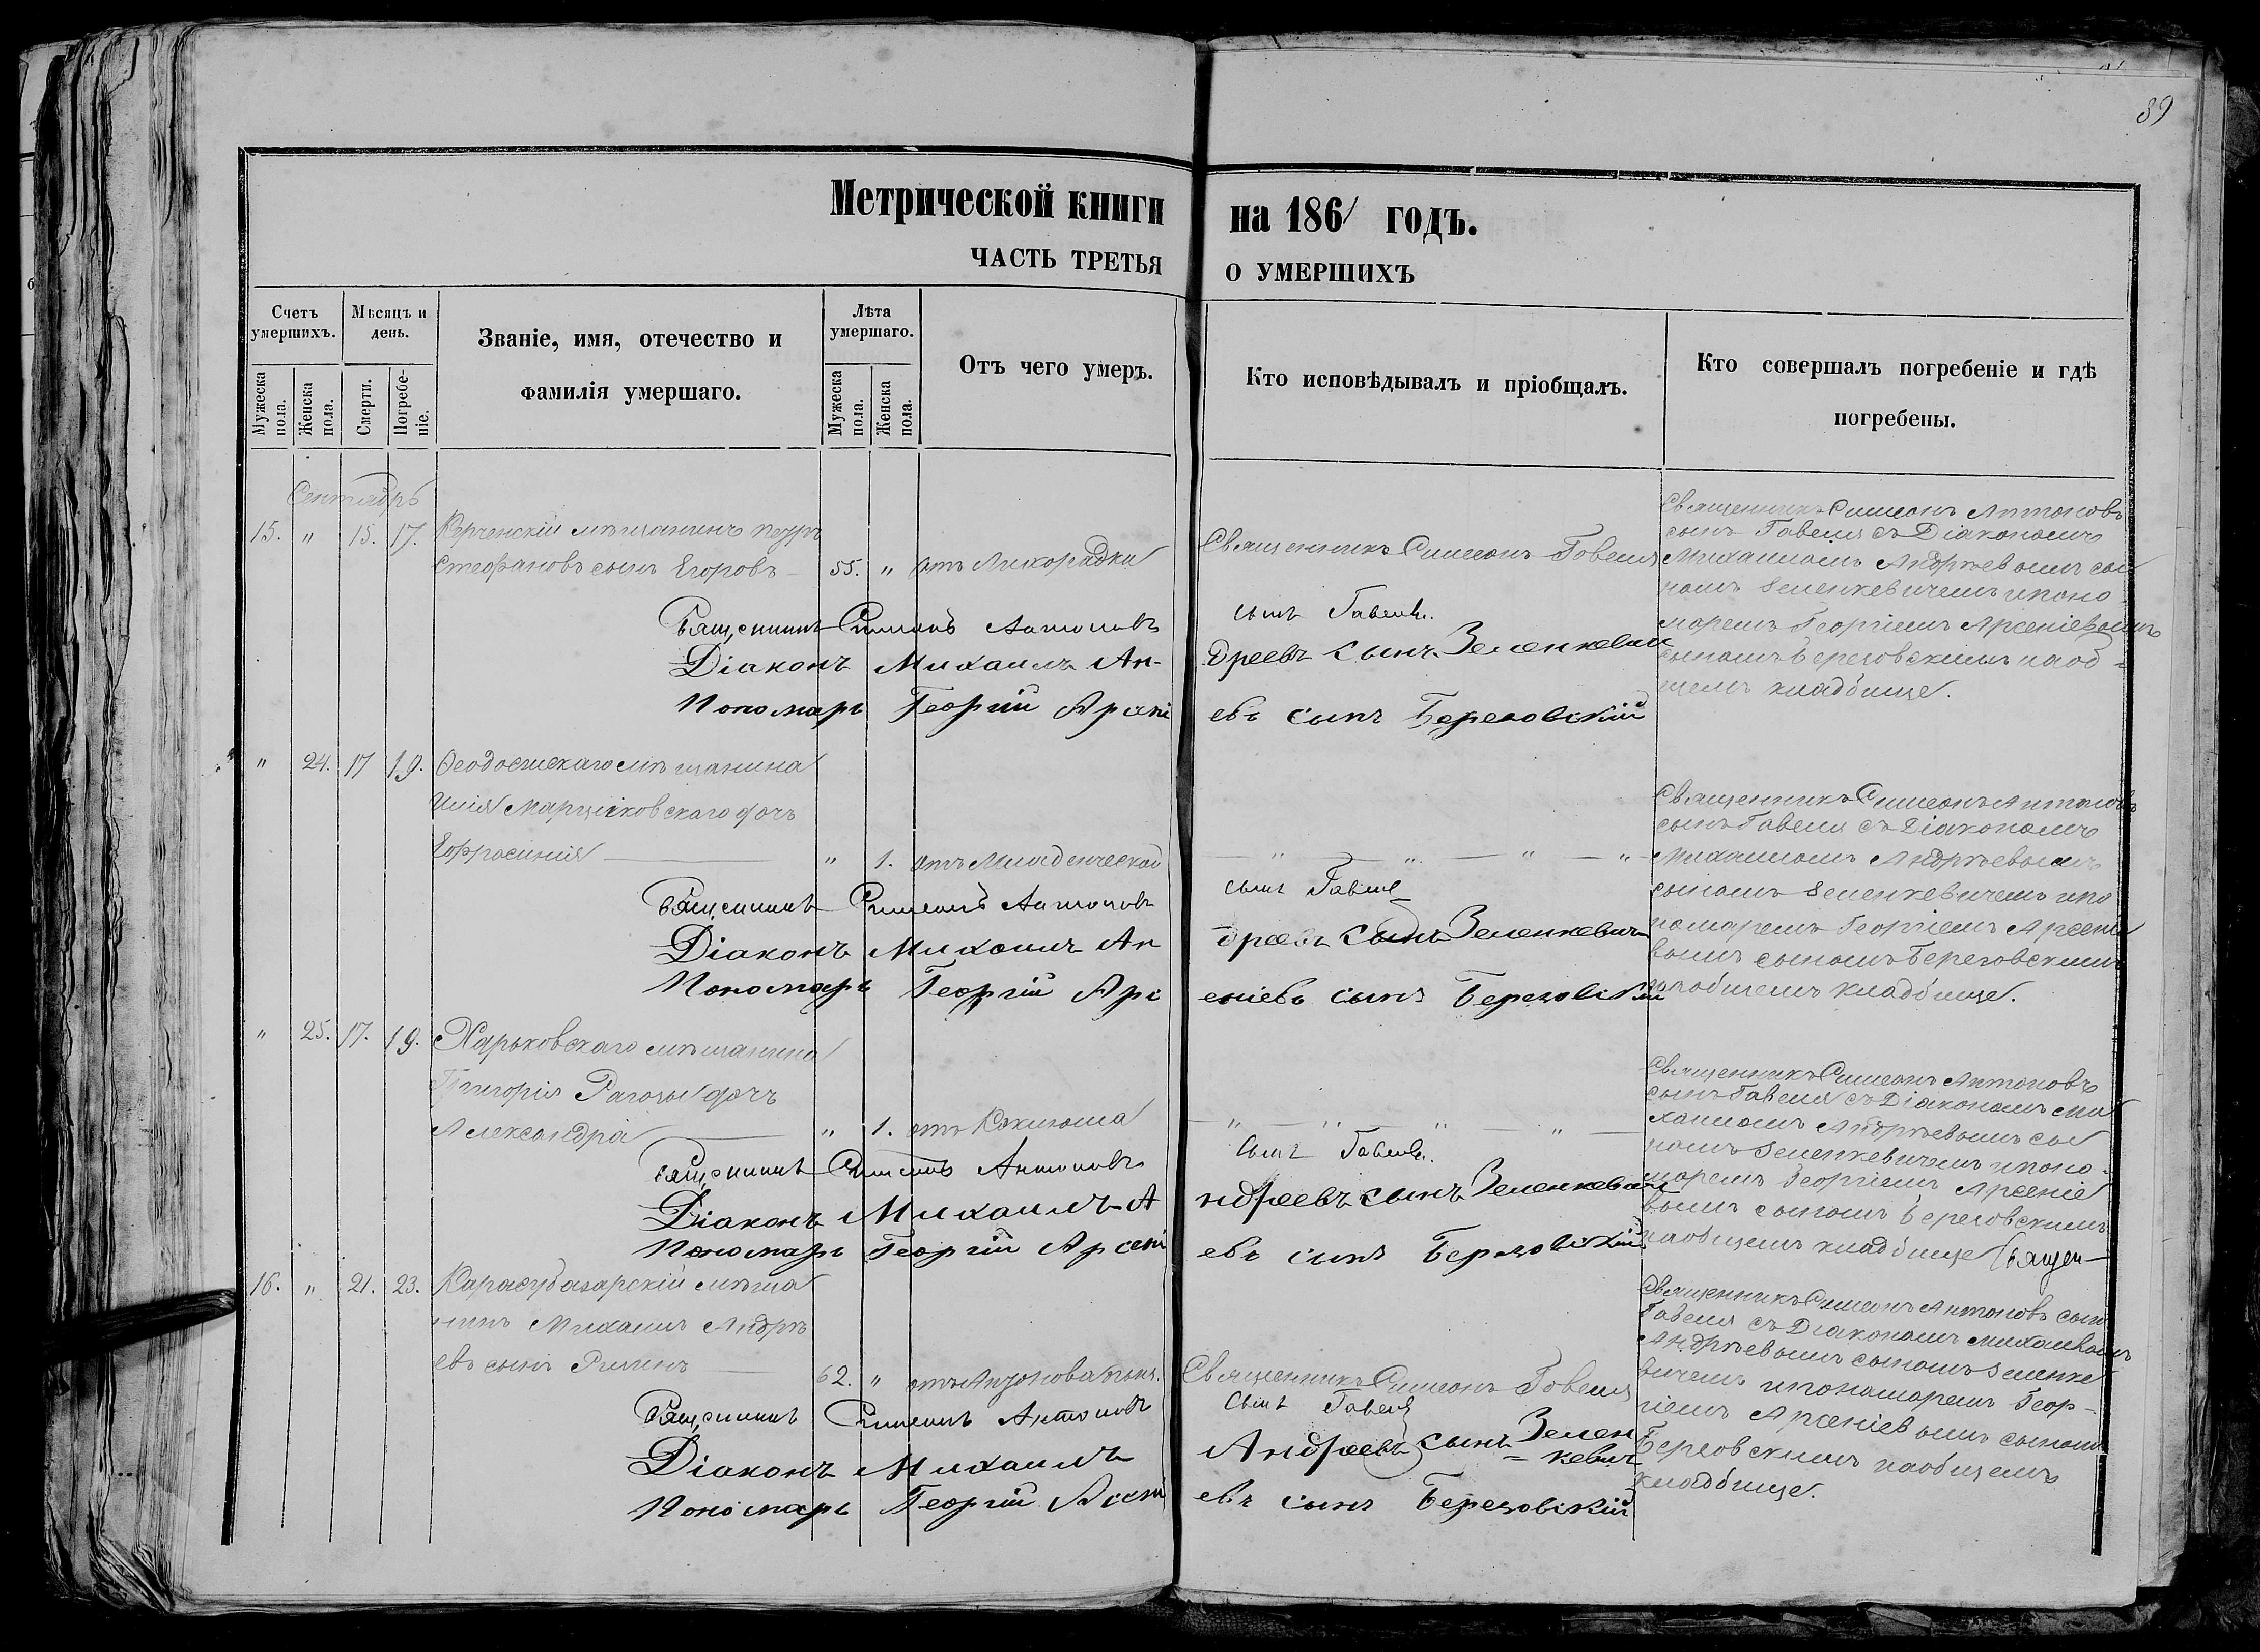 89
Метрической книги на 1861 годъ.
ЧАСТЬ ТРЕТЬЯ О УМЕРШИХЪ
Счетъ умершихъ.
Мѣсяцъ и день.
Званіе, имя, отечество и фамилія умершаго.
Лѣта умершаго.
Отъ чего умеръ.
Кто исповѣдывалъ и пріобщалъ.
Кто совершалъ погребеніе и гдѣ погребены.
Мужеска пола.
Женска пола.
Смерти.
Погребеніе.
Мужеска пола.
Женска пола.
Сентябрь
15. " 15. 17. Керченскій мѣщанинъ Петръ
Стефановъ сынъ Егоровъ — 55. " отъ Лихорадки
Священникъ Симеонъ Гавеля
Священникъ Симеонъ Антоновъ
сынъ Гавеля съ Діакономъ
Михаиломъ Андрѣевымъ сы
номъ Зеленкевичемъ и поно
маремъ Георгіемъ Арсеніевымъ
сыномъ Березовскимъ на об-
щемъ кладбище.
Священникъ Симеонъ Антоновъ сынъ Гавеля.
Діаконъ Михаилъ Ан- дреевъ сынъ Зеленкевич
Пономарь Георгій Арсені евъ сынъ Березовскій
" 24. 17 19. Феодосійскаго мѣщанина
Марцинковскаго дочь
Ефросинія — " 1. отъ Младенческой
— " — " — " — " —
Священникъ Симеонъ Антоновъ
сынъ Гавеля съ Діакономъ
Михаиломъ Андрѣевымъ
сыномъ Зеленкевичемъ и по
номаремъ Георгіемъ Арсені
вымъ сыномъ Березовскимъ
на общемъ кладбище.
Священникъ Симеонъ Антоновъ сынъ Гавеля
Діаконъ Михаилъ Ан дреевъ сынъ Зеленкевичъ
Пономарь Георгій Арс еніевъ сынъ Березовскій
" 25. 17. 19. Харьковскаго мѣщанина
Григорія Рагозы дочь
Александра — " 1. отъ Коклюша
— " — " — " — " —
Священникъ Симеонъ Антоновъ
сынъ Гавеля съ Діакономъ Ми
хаиломъ Андрѣевымъ сы
номъ Зеленкевичемъ и поно-
маремъ Георгіемъ Арсеніе
вымъ сыномъ Березовскимъ
на общемъ кладбище Священ—
Священникъ Симеонъ Антоновъ сынъ Гавеля.
Діаконъ Михаилъ А ндреевъ сынъ Зеленкевич
Пономарь Георгій Арсені евъ сынъ Березовскій
16. " 21. 23. Карасубазарскій мѣща
нинъ Михаилъ Андрѣ
евъ сынъ — 62. "
Священникъ Симеонъ Гавеля
Священникъ Симеонъ Антоновъ сынъ
Гавеля съ Діакономъ Михаиломъ
Андрѣевымъ сыномъ Зеленке
вичемъ и пономаремъ Геор-
гіемъ Арсеніевымъ сыномъ
Березовскимъ на общемъ
кладбище.
Священникъ Симеонъ Антоновъ сынъ Гавеля
Діаконъ Михаилъ Андреевъ сынъ Зелен
= кевич
Пономарь Георгій Арсені евъ сынъ Березовскій